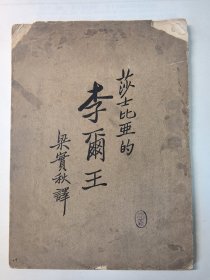 莎士比亞的
李爾王
梁實秋譯